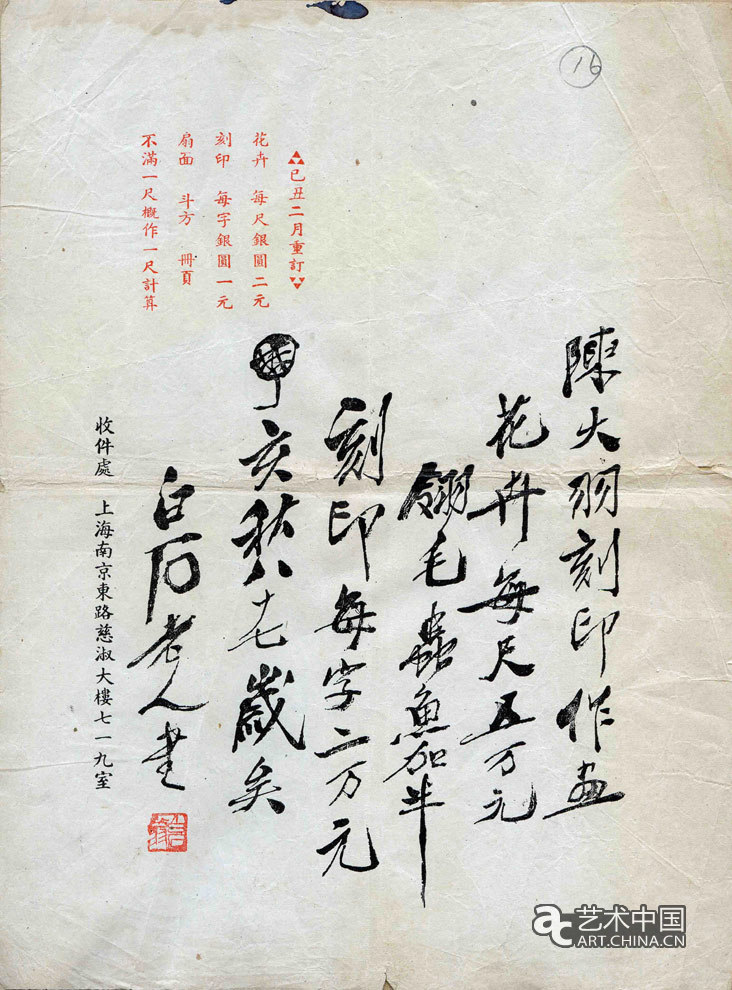 16
陳大羽刻印作画
花卉每尺五万元
翎毛蟲魚加半
刻印每字二万元
亥秋八十七歲矣
白石老人書
▲▲▲己丑二月重訂▼▼▼
花卉 每尺銀圓二元
刻印 每字銀圓一元
扇面 斗方 冊頁
不滿一尺概作一尺計算
收件處 上海南京東路慈淑大樓七一九室
ac艺术中国
ART.CHINA.CN